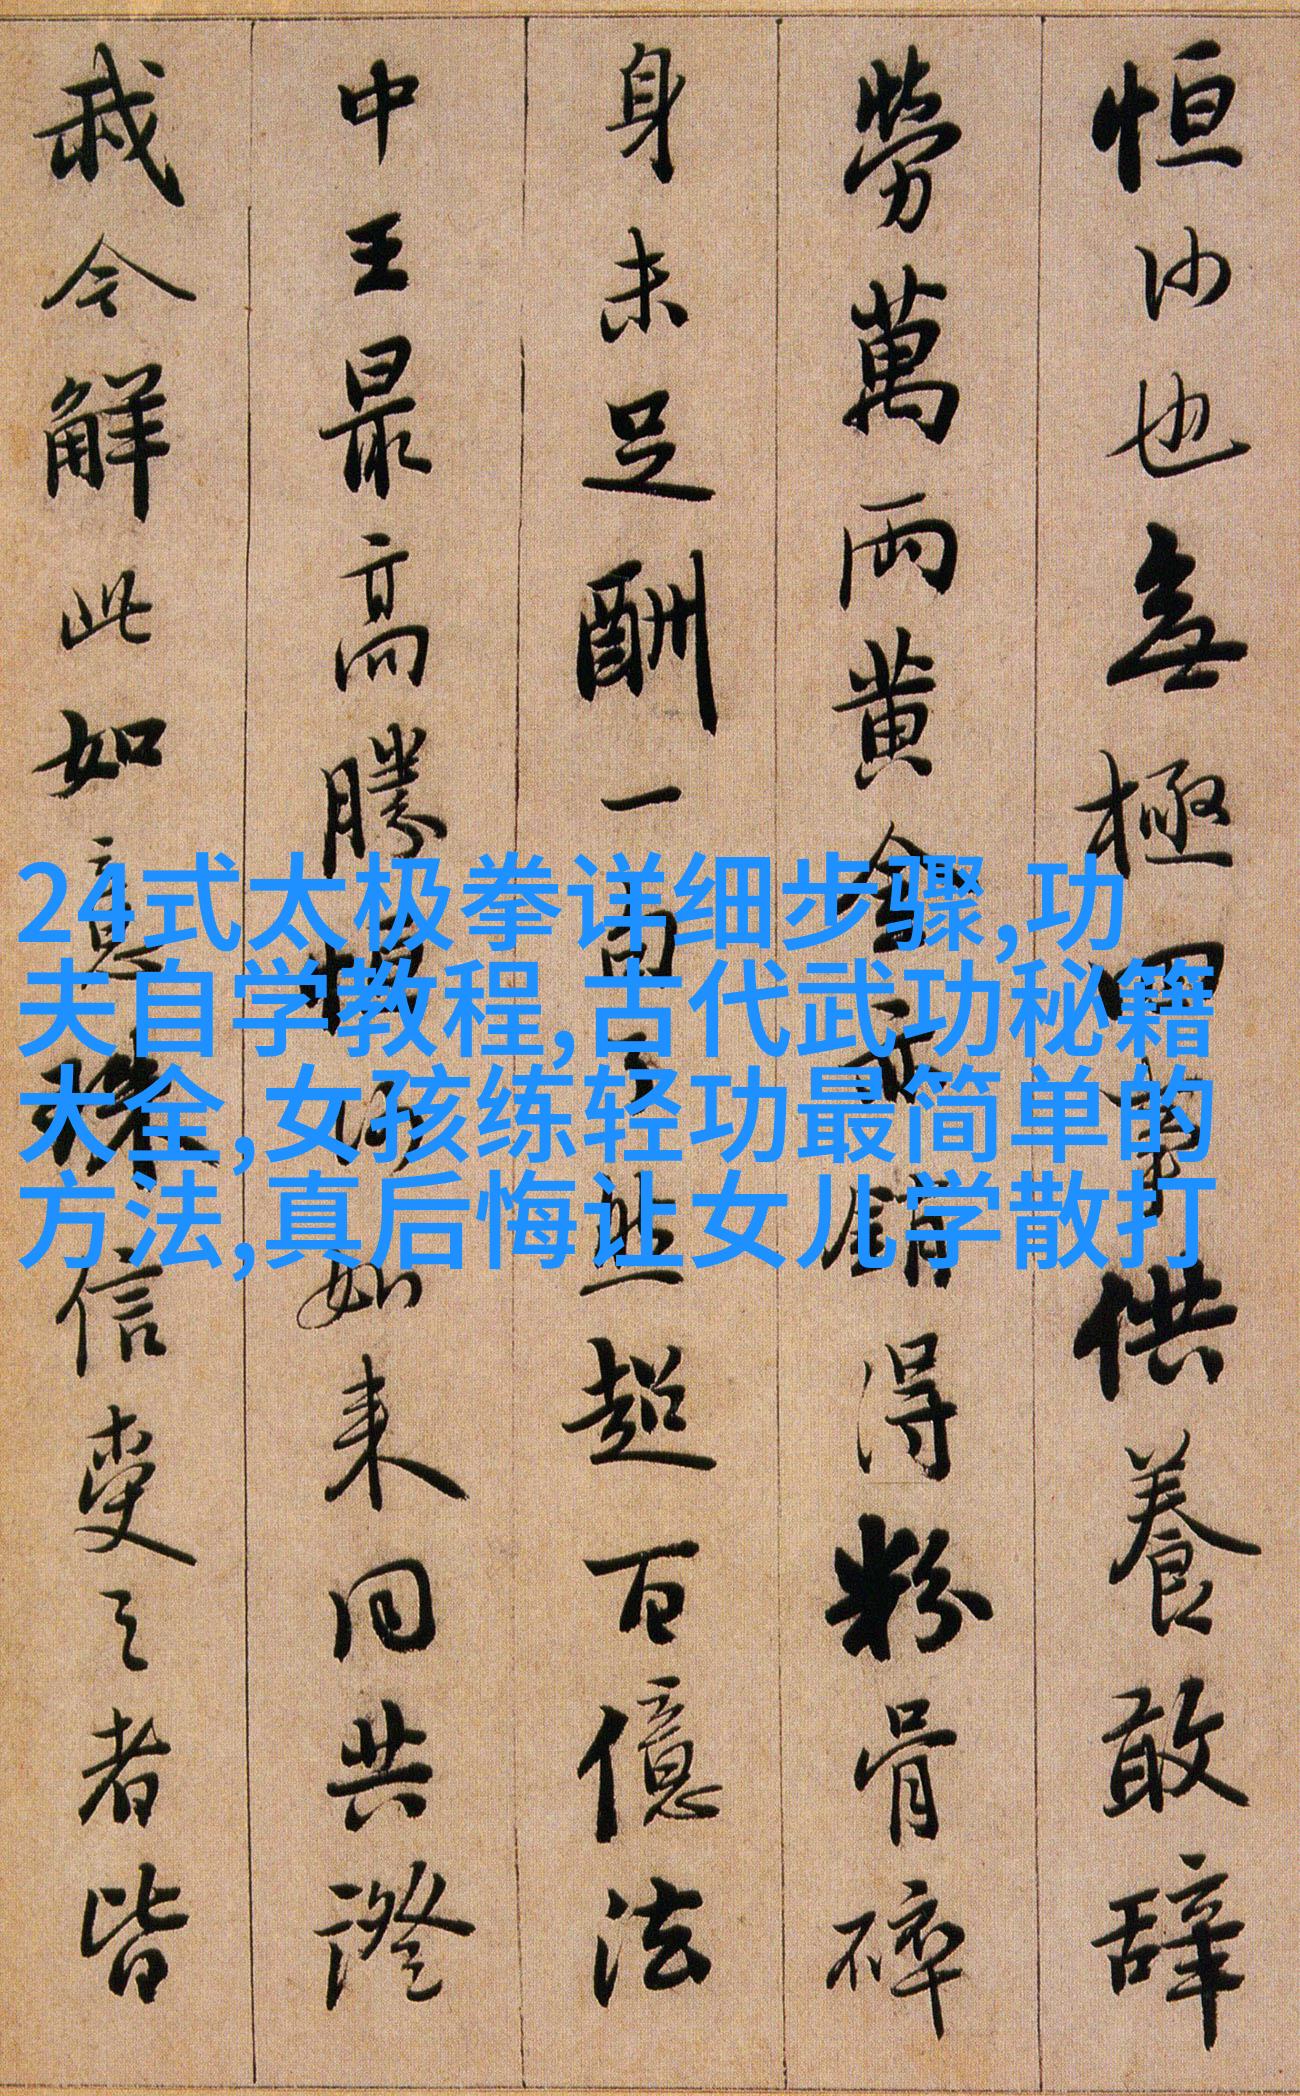 恒沙也無極四事供養敢辞
勞萬兩黄金亦銷得粉骨碎
身未足酬一句了然超百億法
中王最高勝恒沙如来同共證
我今解此如意珠信受之者皆
24式太极拳详细步骤,功
夫自学教程,古代武功秘籍
大全,女孩练轻功最简单的
方法,真后悔让女儿学散打